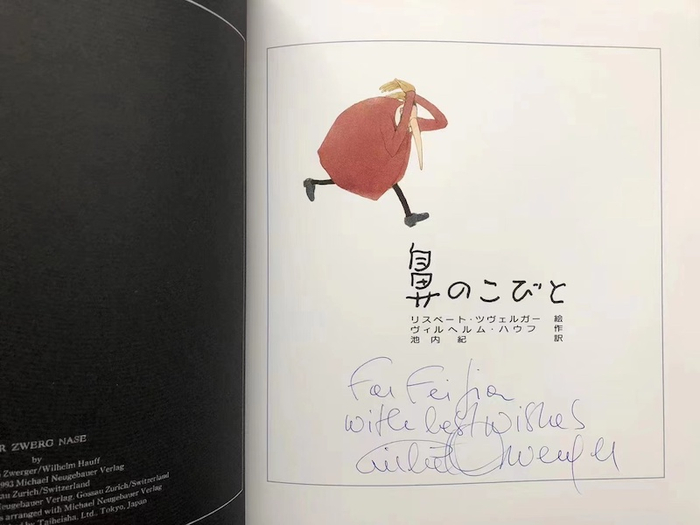 R ZWERG NASE
by
Zwerger/Wilhelm Hauff
1993 Michael Neugebauer Verlag
au Zurich/Switzerland
eugebauer Verlag, Gossau Zurich/Switzerland
s arranged with Michael Neugebauer Verlag
d by Taiheisha, Ltd., Tokyo, Japan
鼻のこびと
リスベート・ツヴェルガー 絵
ヴィルヘルム・ハウフ 作
池内 紀 訳
For Fei Jia
with best wishes
Lisbeth Zwerger